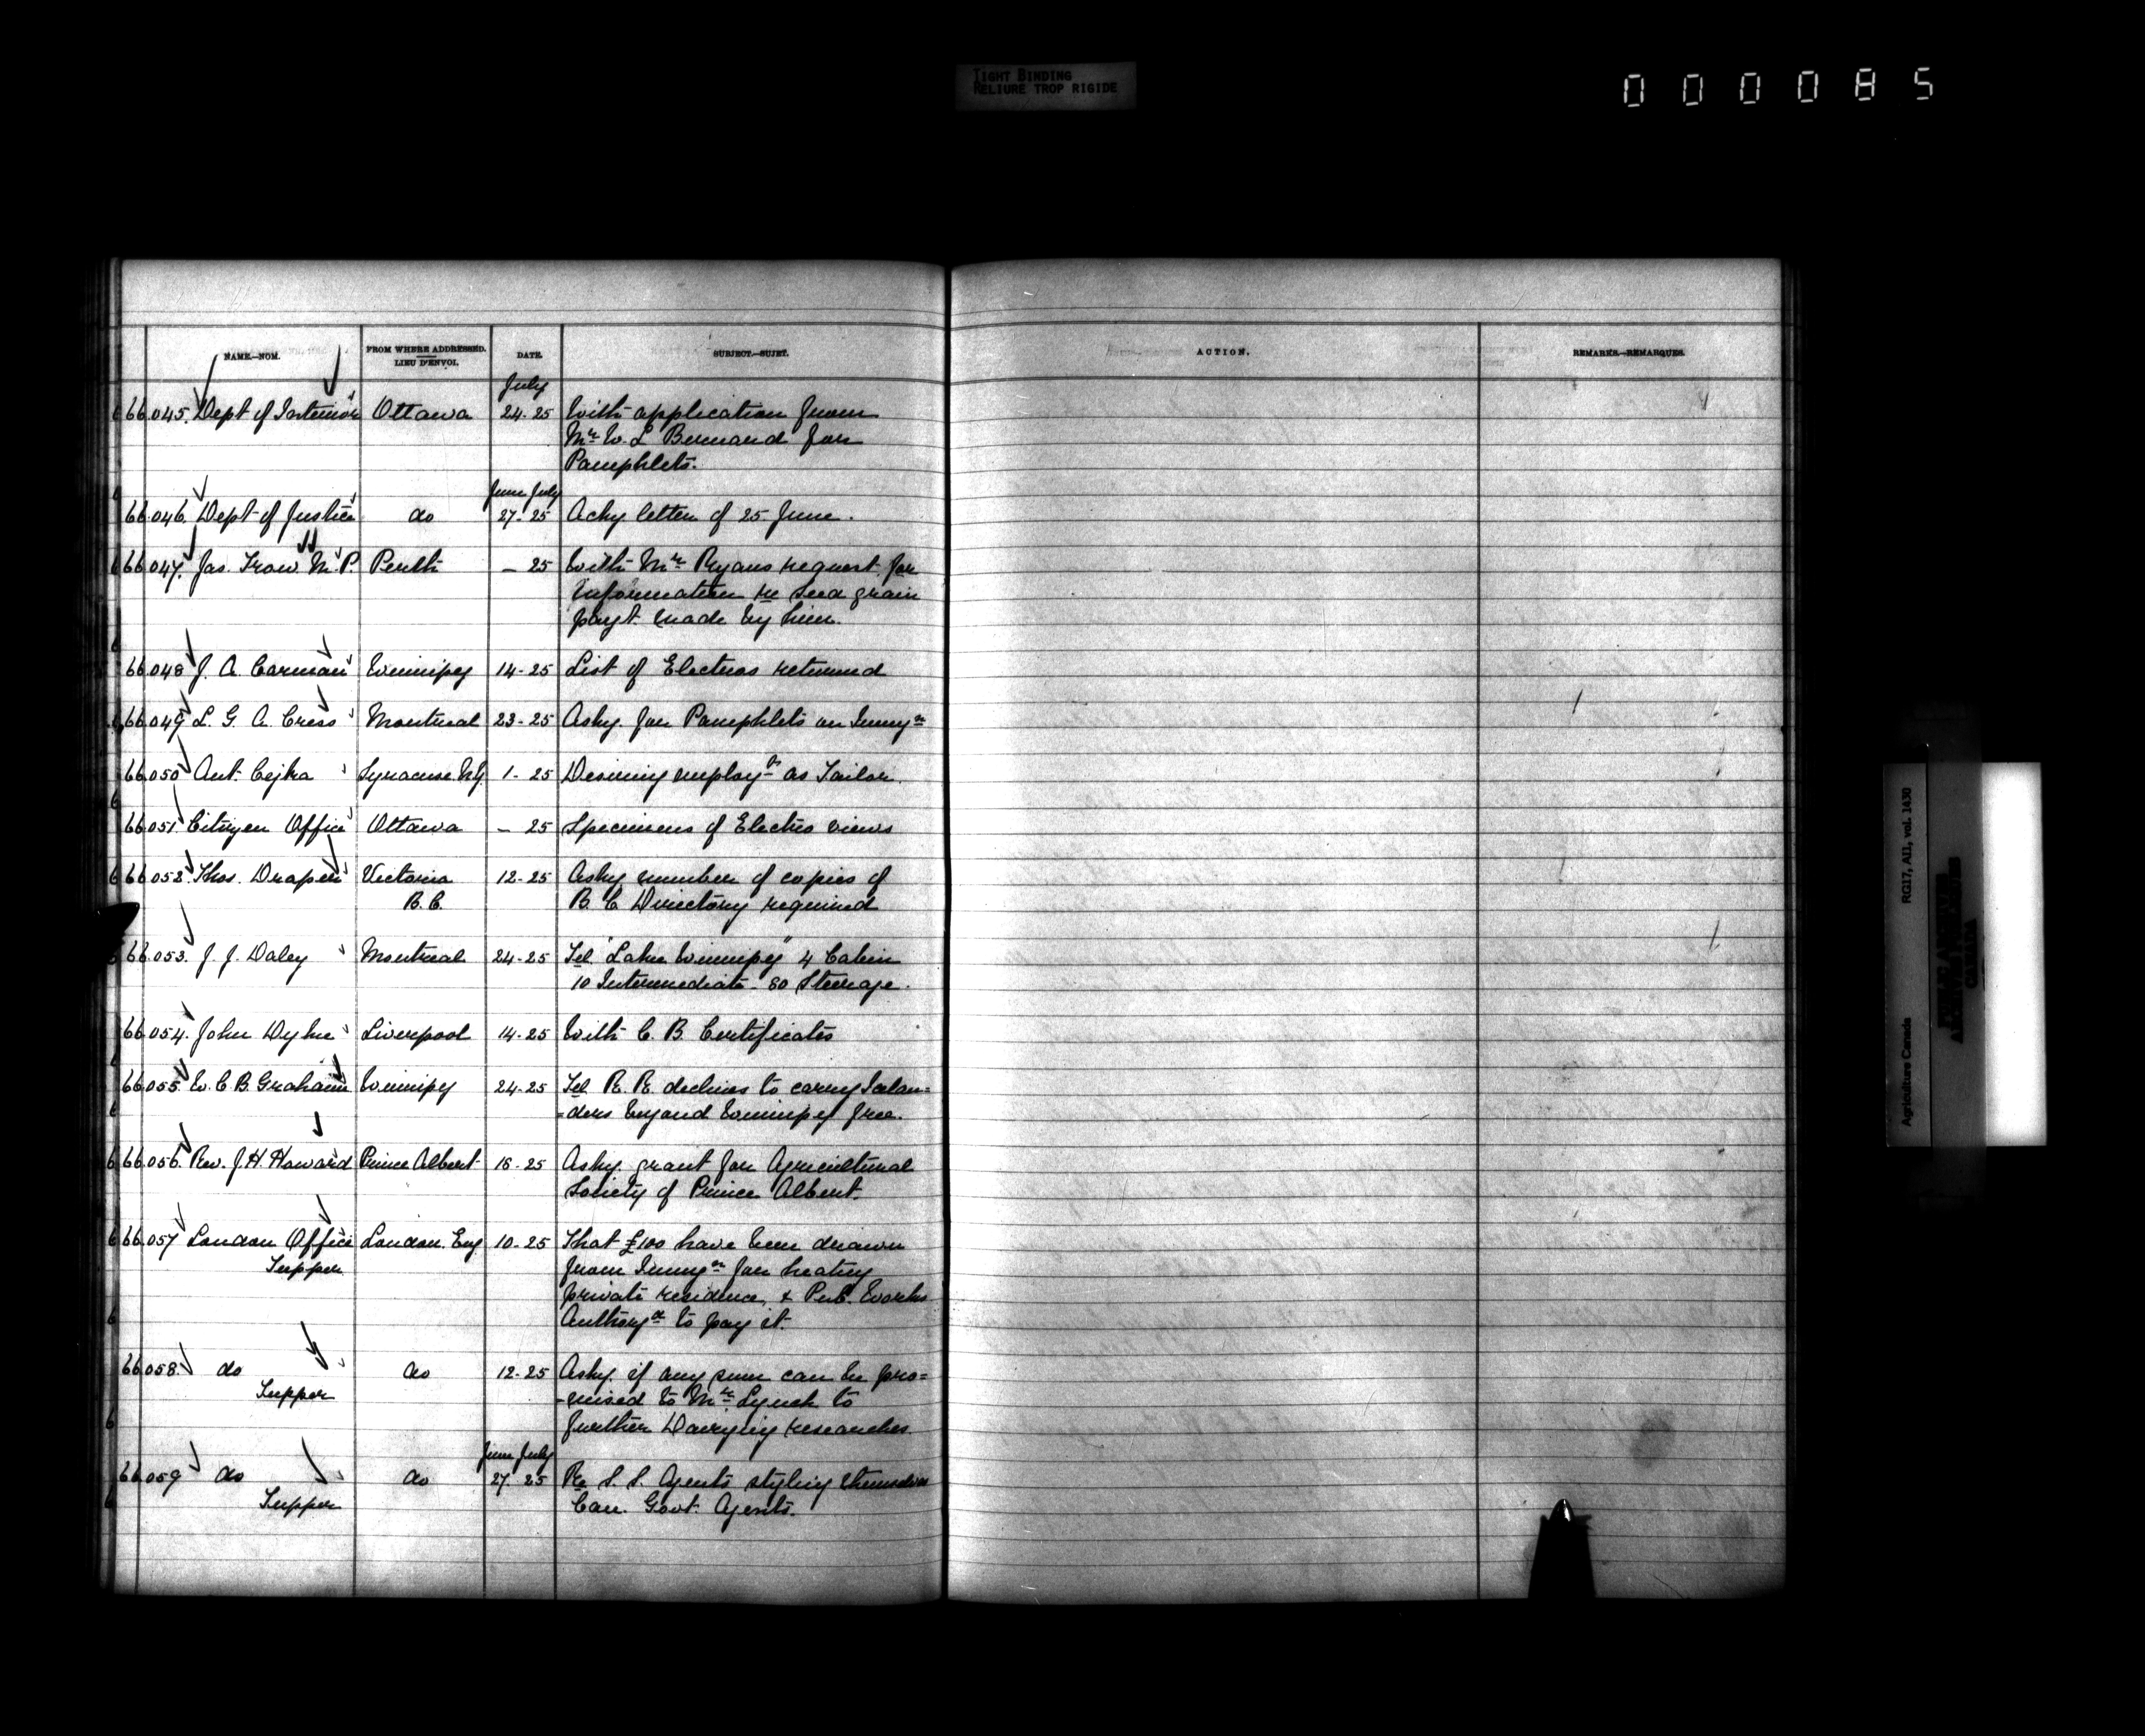 TIGHT BINDING
RELIURE TROP RIGIDE
000085
NAME.—NOM.
FROM WHERE ADDRESSED.
LIEU D'ENVOI.
DATE.
SUBJECT.—SUJET.
ACTION.
REMARKS.—REMARQUES.
July
66.045. Dept of Interior Ottawa 24-25 With application from
Mr W. L Bernard for
Pamphlets.
June July
66.046. Dept of Justice do 27-25 Ackg letter of 25 June.
66.047. Jas. Trow. M.P. Perth — 25 With Mr Ryans request for
information re seed grain
payt. made by him.
66.048 J. A. Carman Winnipeg 14-25 List of Electros returned
66.049 L. G. A. Cress Montreal 23-25 Askg. for Pamphlets on Immgn
66.050 Ant. Cejka Syracuse N.Y. 1-25 Desiring employt as Tailor.
66.051 Citizen Office Ottawa — 25 Specimens of Electro views
66.052 Thos. Draper Victoria 12-25 Askg number of copies of
B.C. B. C Directory required
66.053. J. J. Daley Montreal 24-25 Tel "Lake Winnipeg" 4 Cabin
10 Intermediate - 80 Steerage.
66.054. John Dyke Liverpool 14-25 With C. B. Certificates
66.055 W. C. B. Grahame Winnipeg 24-25 Tel R. R. declines to carry Icelan=
=ders beyond Winnipeg free.
66.056. Rev. J. H. Howard Prince Albert 16-25 Askg. grant for Agricultural
Society of Prince Albert.
66.057 London Office London. Eng 10-25 That £100 have been drawn
Tupper from Immgn for heating
private residence, & Pub. Works
Authorgd to pay it.
66.058. do do 12-25 Askg. if any sum can be pro=
Tupper -mised to Mr Lynch to
further Dairying researches.
June July
66.059 do do 27-25 Re S. S. Agents styling themselves
Tupper Can. Govt. Agents.
Agriculture Canada RG17, AII, vol. 1430
PUBLIC ARCHIVES
ARCHIVES PUBLIQUES
CANADA